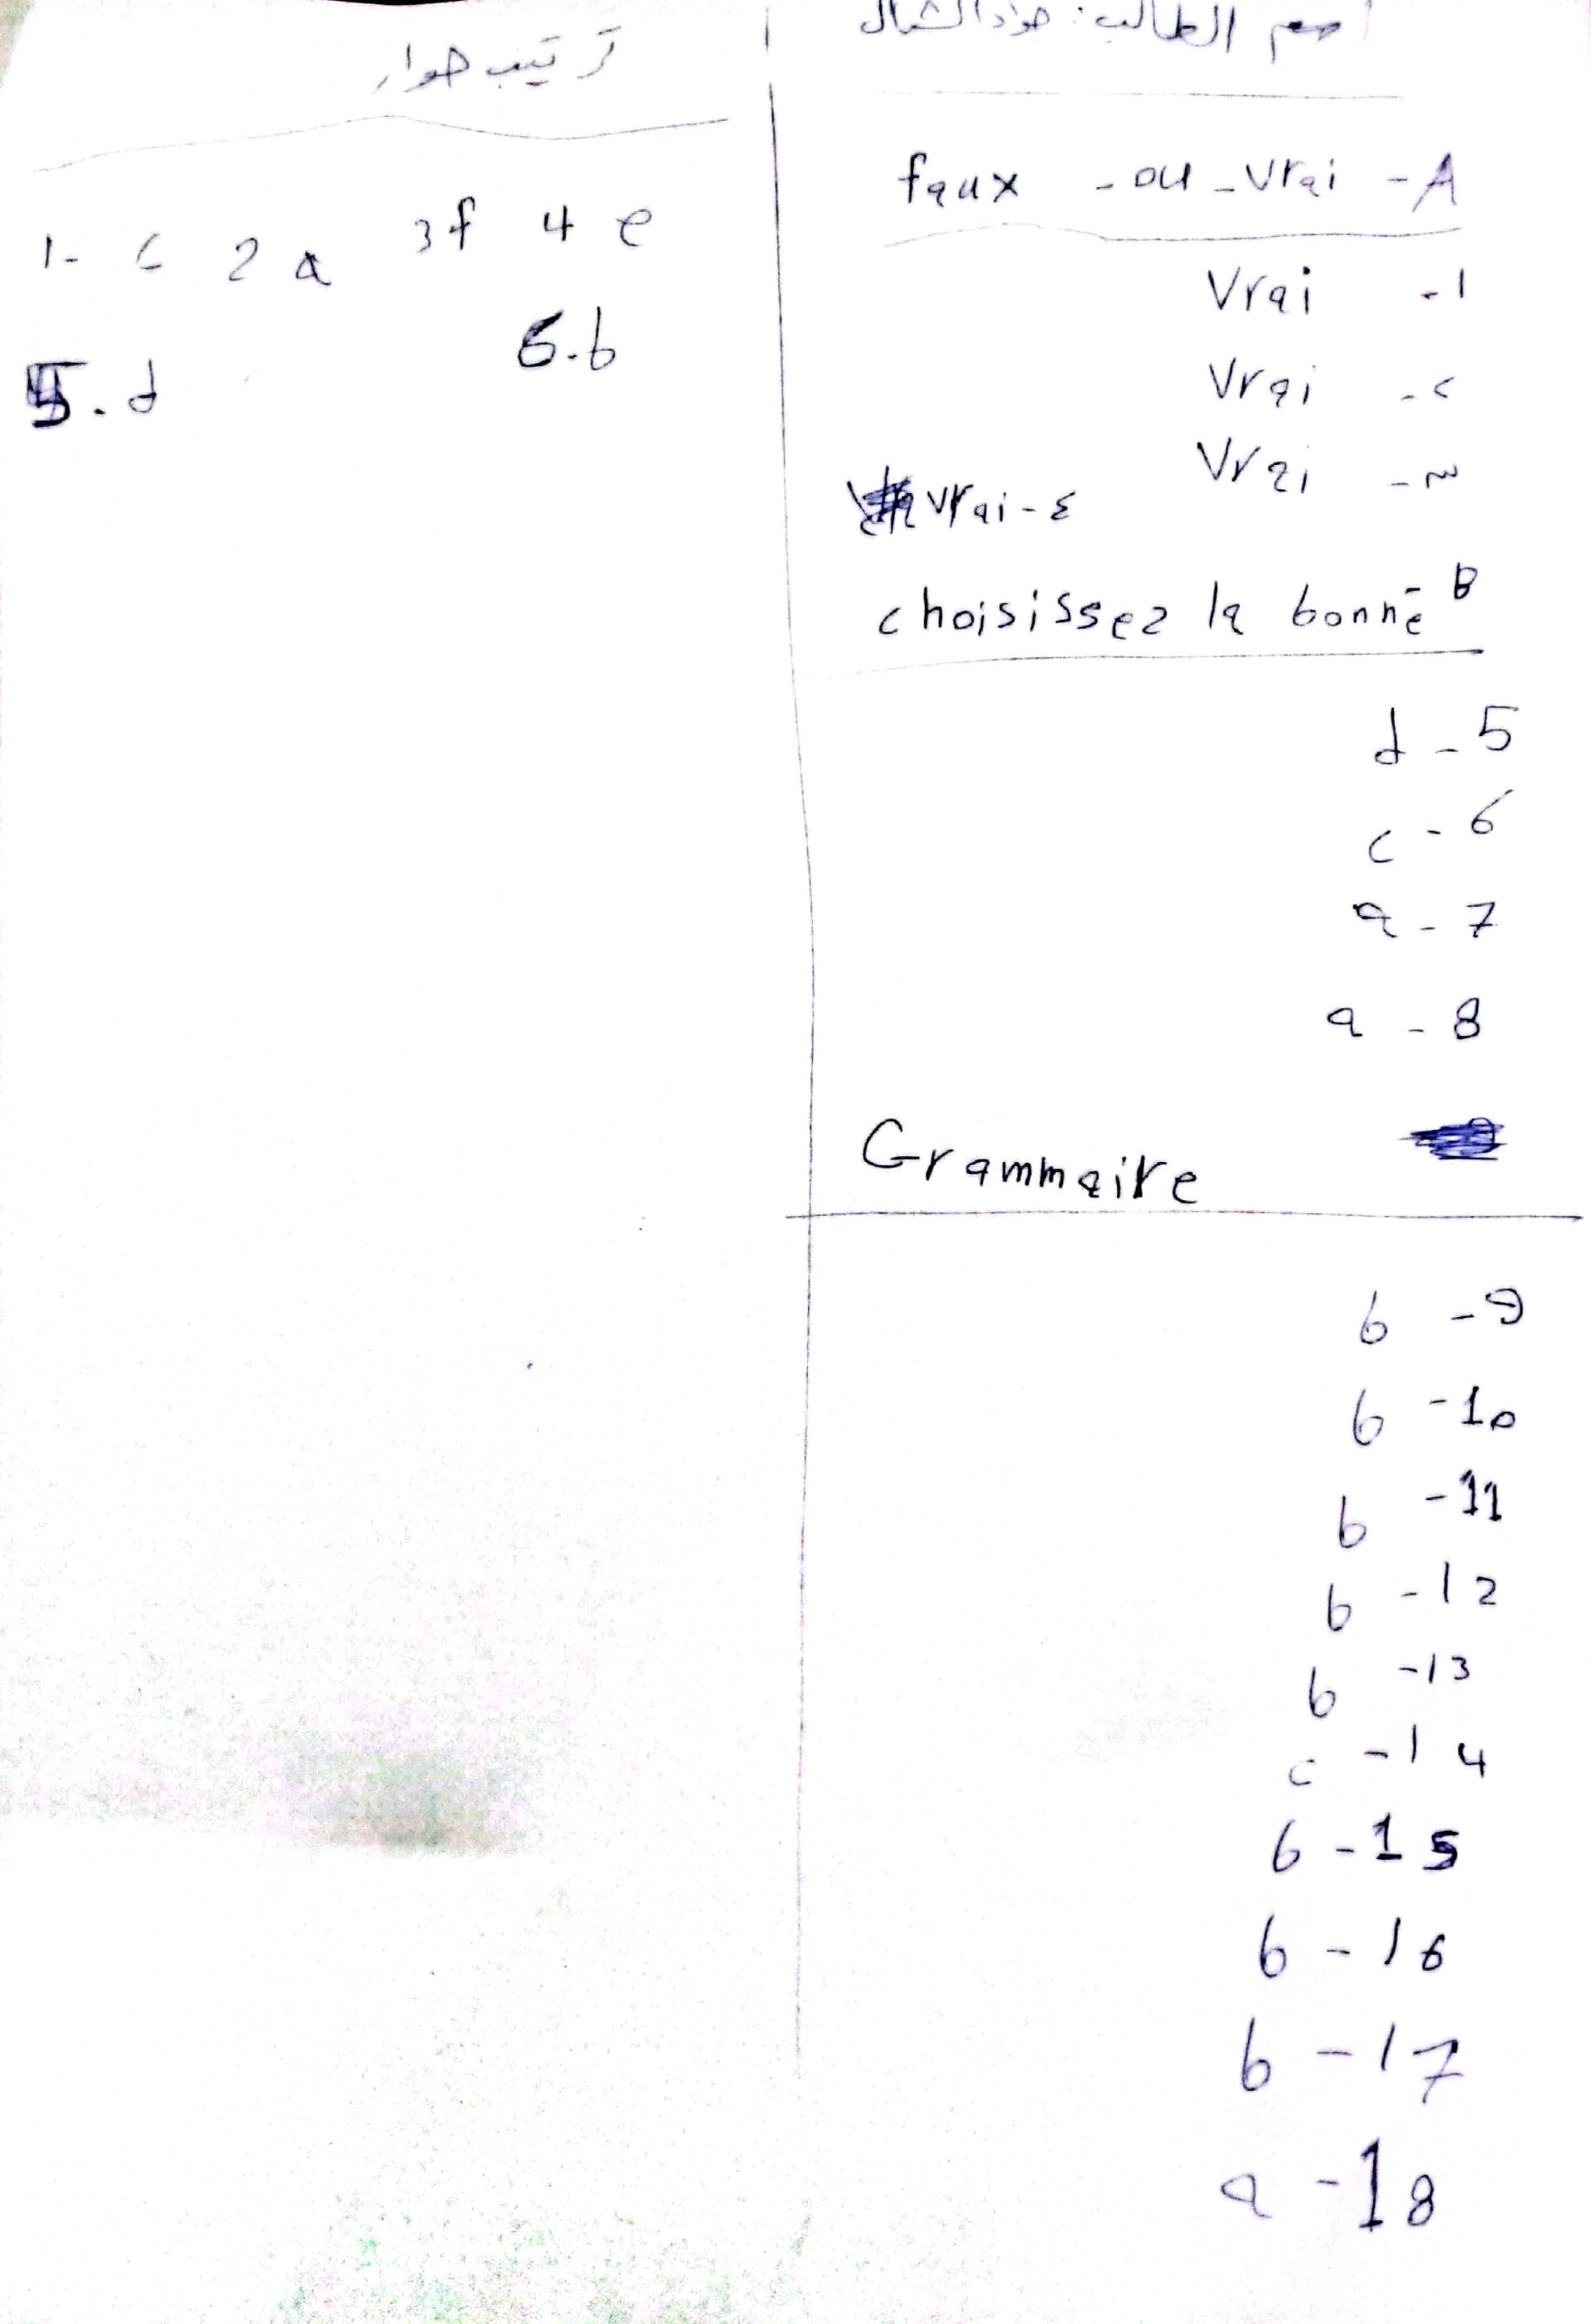 اسم الطالب: جواد الشمال
faux - ou - vrai - A
vrai - 1
vrai - ٢
vrai - ٣
vrai - ٤
choisissez la bonne B
d - 5
c - 6
a - 7
a - 8
Grammaire
b - 9
b - 10
b - 11
b - 12
b - 13
c - 14
b - 15
b - 16
b - 17
a - 18
ترتيب حوار
1- c 2 a 3 f 4 e
5. d 6. b